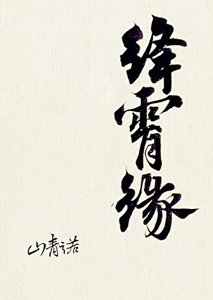 绛霄缘
山青诺